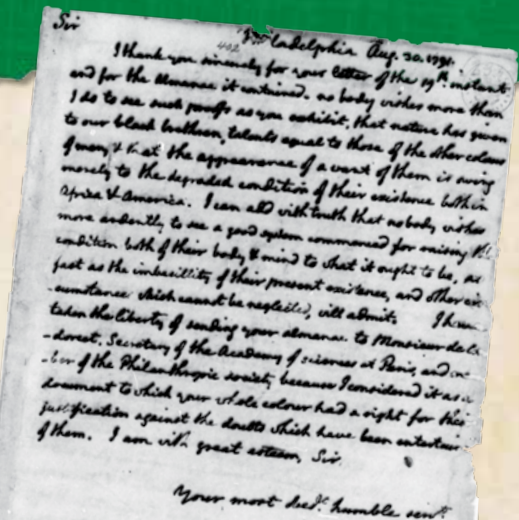 Sir
Philadelphia Aug. 30. 1791.
402
I thank you sincerely for your letter of the 19th. instant
and for the almanac it contained. no body wishes more than
I do to see such proofs as you exhibit, that nature has given
to our black brethren, talents equal to those of the other colours
of men, & that the appearance of a want of them is owing
merely to the degraded condition of their existence both in
Africa & America. I can add with truth that nobody wishes
more ardently to see a good system commenced for raising the
condition both of their body & mind to what it ought to be, as
fast as the imbecillity of their present existence, and other cir
-cumstance which cannot be neglected, will admit. I have
taken the liberty of sending your almanac to Monsieur de
-dorcet, Secretary of the Academy of sciences at Paris, and
-ber of the Philanthropic society because I considered it as a
document to which your whole colour had a right for their
justification against the doubts which have been entertain
of them. I am with great esteem, Sir.
Your most obedt. humble servt.